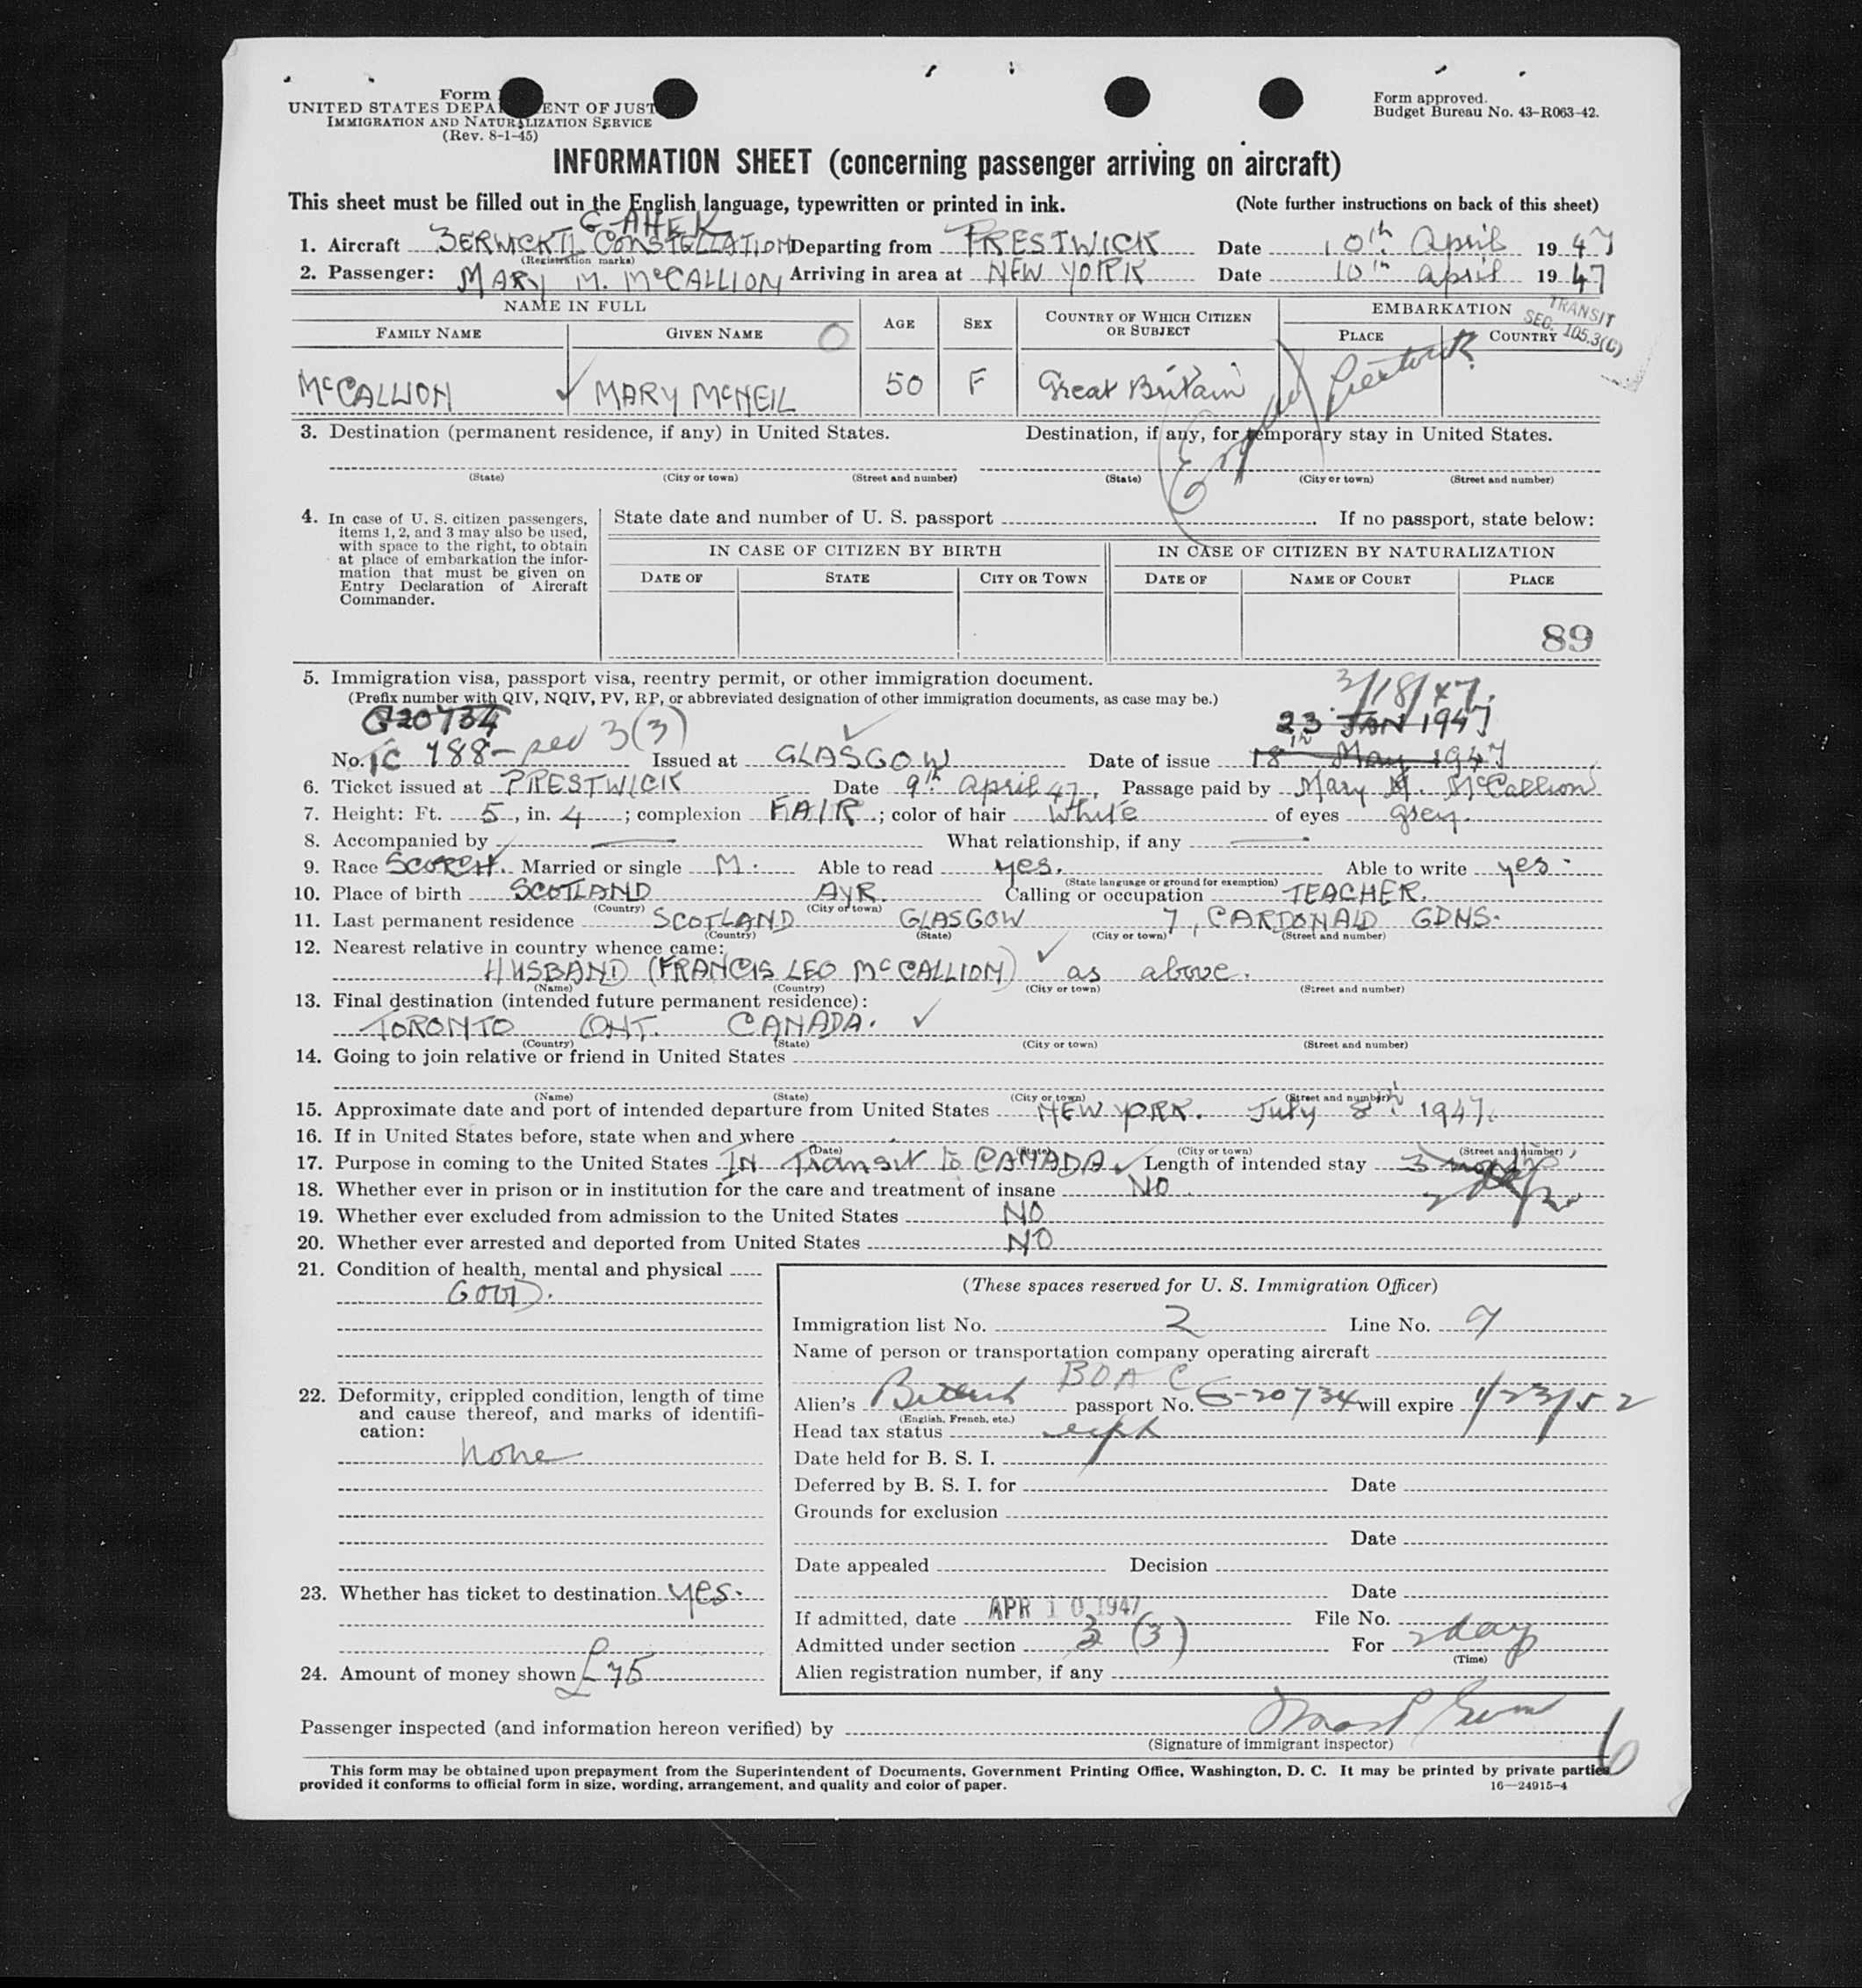 Form
UNITED STATES DEPA ENT OF JUST
IMMIGRATION AND NATURALIZATION SERVICE
(Rev. 8-1-45)
Form approved.
Budget Bureau No. 43-R063-42.
INFORMATION SHEET (concerning passenger arriving on aircraft)
This sheet must be filled out in the English language, typewritten or printed in ink. (Note further instructions on back of this sheet)
G-AHEK
1. Aircraft BERWICK II CONSTELLATION Departing from PRESTWICK Date 10th April 1947
(Registration marks)
2. Passenger: MARY M. McCALLION Arriving in area at NEW YORK Date 10th April 1947
TRANSIT
SEC. 105.3(C)
NAME IN FULL AGE SEX COUNTRY OF WHICH CITIZEN OR SUBJECT EMBARKATION
FAMILY NAME GIVEN NAME PLACE COUNTRY
McCALLION MARY McNEIL 50 F Great Britain Prestwick
3. Destination (permanent residence, if any) in United States. Destination, if any, for temporary stay in United States.
(State) (City or town) (Street and number) (State) (City or town) (Street and number)
4. In case of U. S. citizen passengers,
items 1, 2, and 3 may also be used,
with space to the right, to obtain
at place of embarkation the infor-
mation that must be given on
Entry Declaration of Aircraft
Commander.
State date and number of U. S. passport . If no passport, state below:
IN CASE OF CITIZEN BY BIRTH IN CASE OF CITIZEN BY NATURALIZATION
DATE OF STATE CITY OR TOWN DATE OF NAME OF COURT PLACE
89
5. Immigration visa, passport visa, reentry permit, or other immigration document.
(Prefix number with QIV, NQIV, PV, RP, or abbreviated designation of other immigration documents, as case may be.)
3/18/47.
G20734 23 JAN 1947
No. TC 788 - sec 3(3) Issued at GLASGOW Date of issue 18th May 1947
6. Ticket issued at PRESTWICK Date 9th April 47. Passage paid by Mary M. McCallion
7. Height: Ft. 5, in. 4; complexion FAIR; color of hair White of eyes grey.
8. Accompanied by What relationship, if any
9. Race SCOTCH. Married or single M. Able to read yes. Able to write yes.
(State language or ground for exemption)
10. Place of birth SCOTLAND AYR. Calling or occupation TEACHER.
(Country) (City or town)
11. Last permanent residence SCOTLAND GLASGOW 7, CARDONALD GDNS.
(Country) (State) (City or town) (Street and number)
12. Nearest relative in country whence came:
HUSBAND (FRANCIS LEO McCALLION) as above.
(Name) (Country) (City or town) (Street and number)
13. Final destination (intended future permanent residence):
TORONTO ONT. CANADA.
(Country) (State) (City or town) (Street and number)
14. Going to join relative or friend in United States
(Name) (State) (City or town) (Street and number)
15. Approximate date and port of intended departure from United States NEW YORK. July 8th 1947.
16. If in United States before, state when and where
(Date) (State) (City or town) (Street and number)
17. Purpose in coming to the United States IN Transit to CANADA Length of intended stay
18. Whether ever in prison or in institution for the care and treatment of insane NO
19. Whether ever excluded from admission to the United States NO
20. Whether ever arrested and deported from United States NO
21. Condition of health, mental and physical
GOOD.
22. Deformity, crippled condition, length of time
and cause thereof, and marks of identifi-
cation:
None
23. Whether has ticket to destination yes.
24. Amount of money shown £75
(These spaces reserved for U. S. Immigration Officer)
Immigration list No. 2 Line No. 9
Name of person or transportation company operating aircraft
BOAC
Alien's British passport No. G-20734 will expire 1/23/52
(English, French, etc.)
Head tax status
Date held for B. S. I.
Deferred by B. S. I. for Date
Grounds for exclusion
Date
Date appealed Decision
Date
If admitted, date APR 10 1947 File No.
Admitted under section 3 (3) For 2 day
(Time)
Alien registration number, if any
Passenger inspected (and information hereon verified) by
(Signature of immigrant inspector)
6
This form may be obtained upon prepayment from the Superintendent of Documents, Government Printing Office, Washington, D. C. It may be printed by private parties
provided it conforms to official form in size, wording, arrangement, and quality and color of paper. 16—24915-4